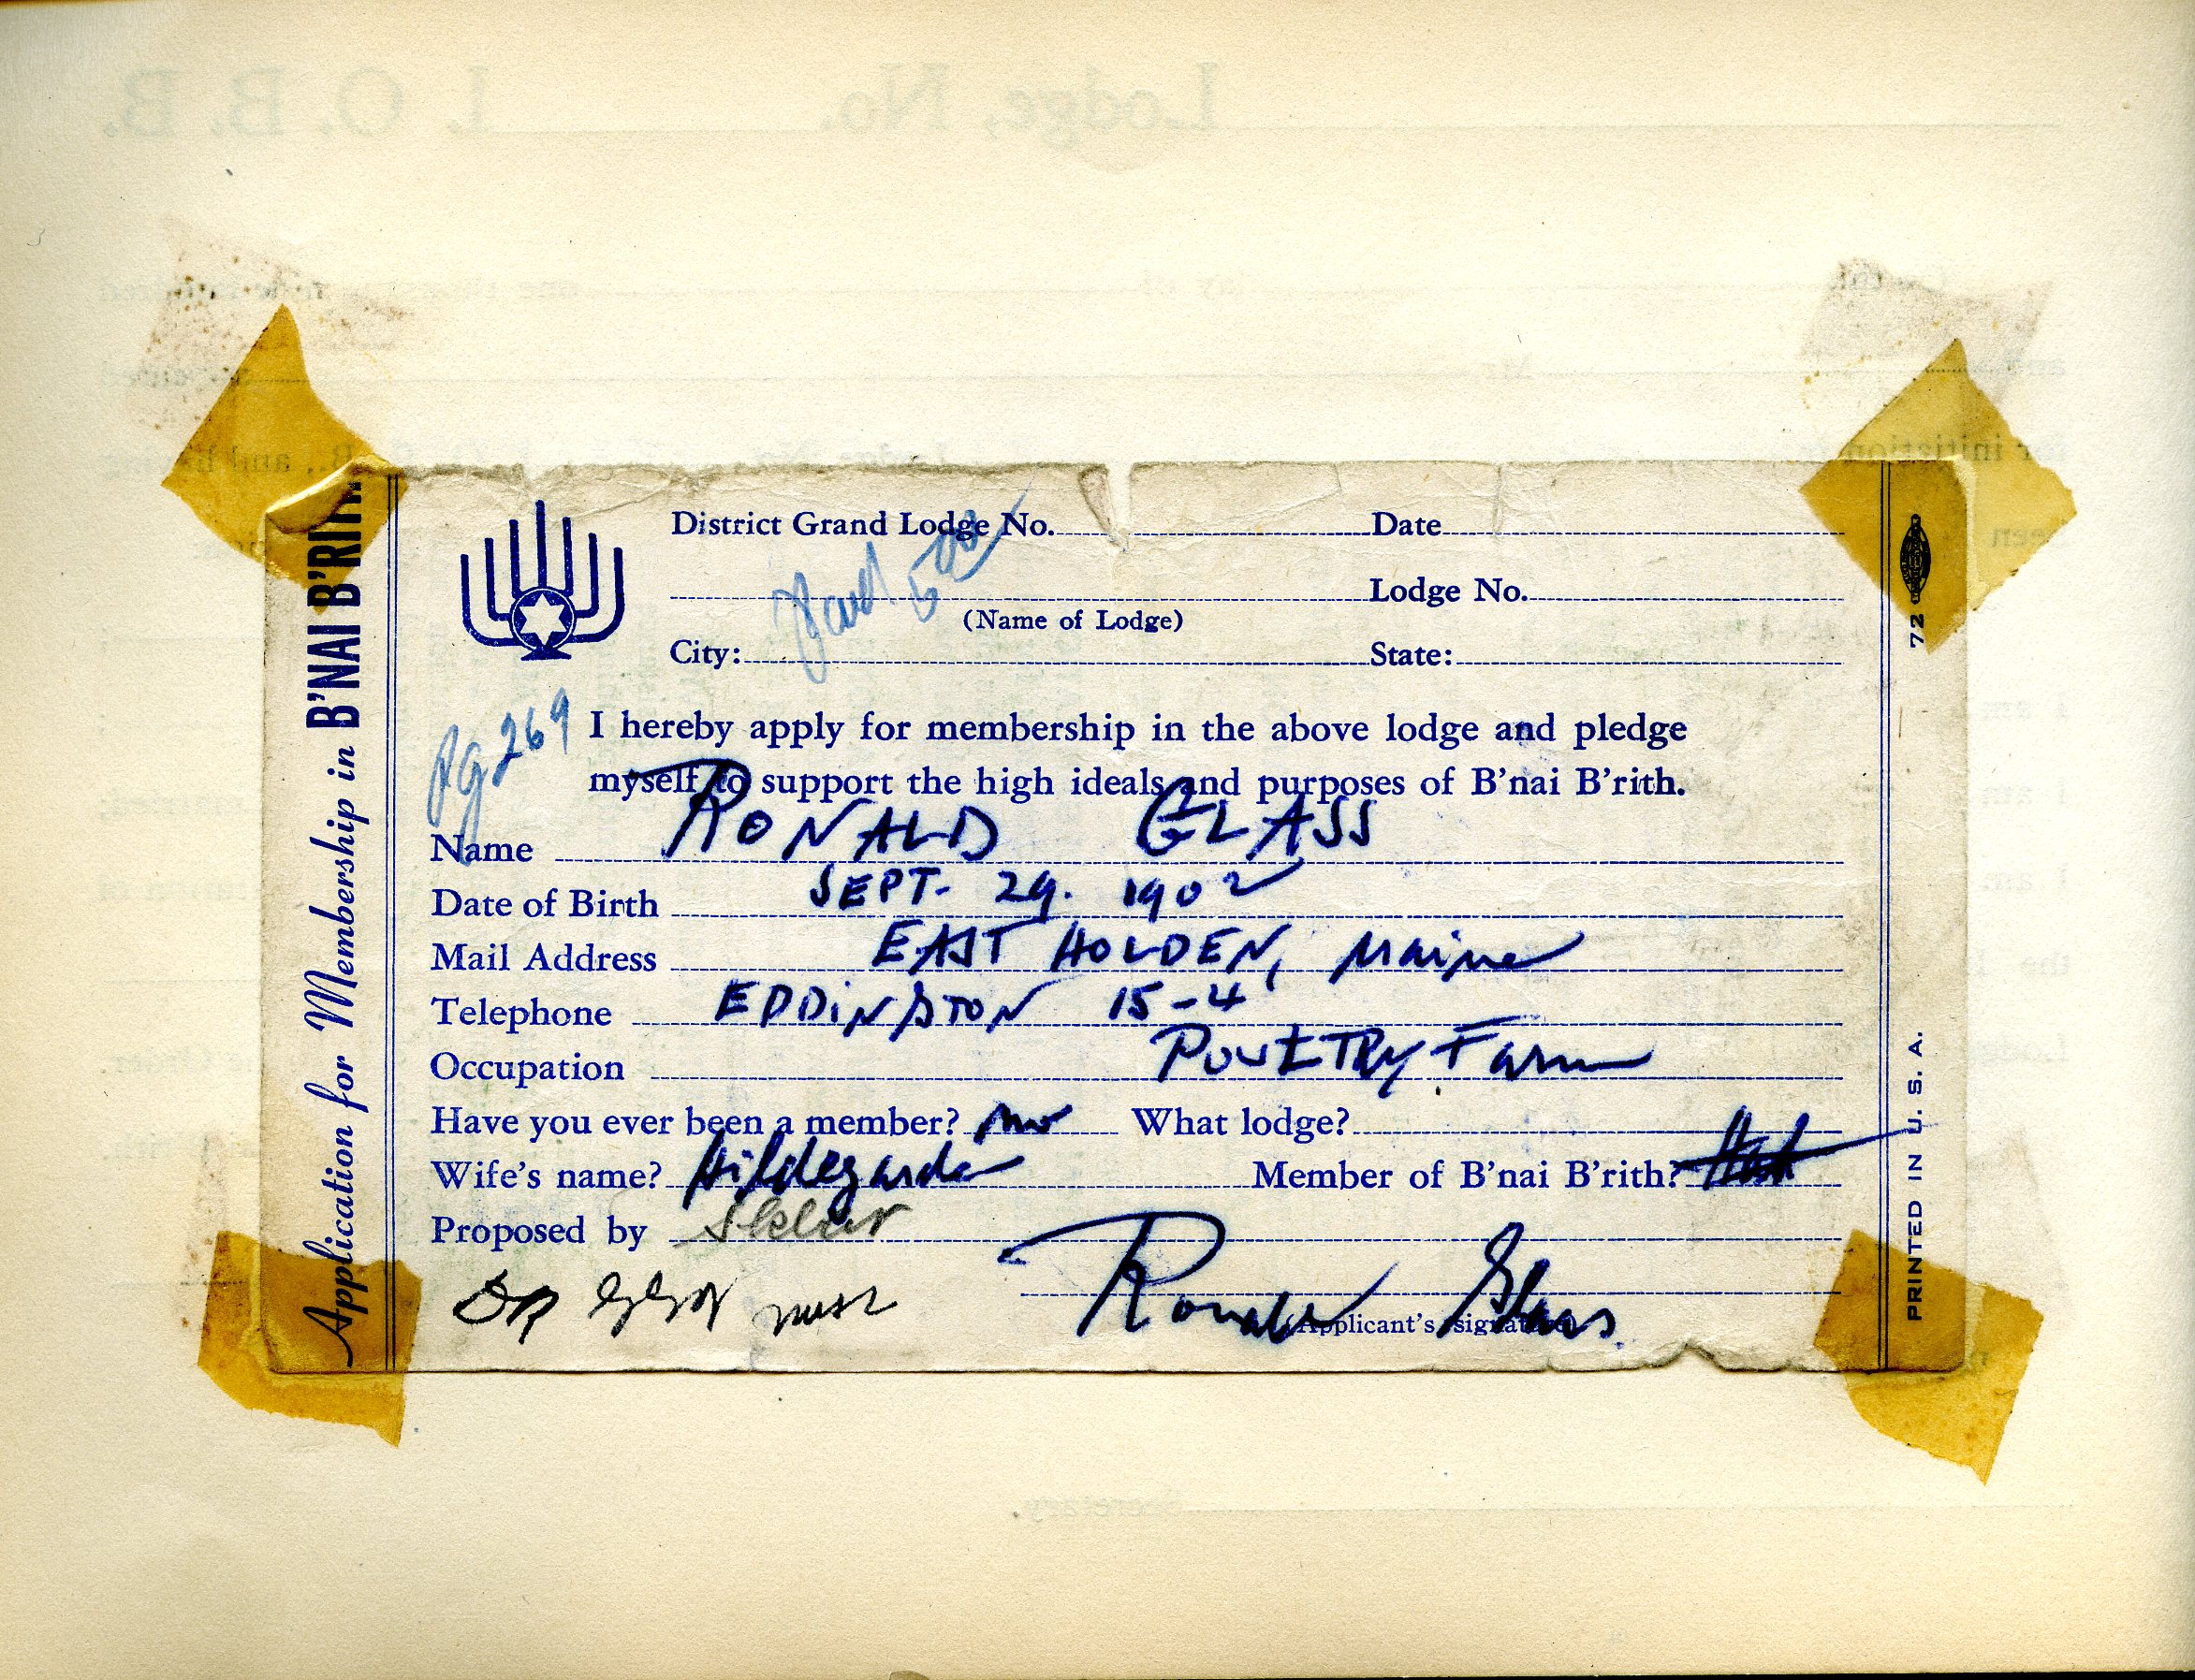 Lodge, No. I. O. B. B.
District Grand Lodge No. Date
Paid 5 00
Lodge No.
(Name of Lodge)
City: State:
Pg 269
I hereby apply for membership in the above lodge and pledge
myself to support the high ideals and purposes of B'nai B'rith.
Name RONALD GLASS
Date of Birth SEPT. 29. 1902
Mail Address EAST HOLDEN, Maine
Telephone EDDINGTON 15-4
Occupation POULTRY Farm
Have you ever been a member? no What lodge?
Wife's name? Hildegarde Member of B'nai B'rith?
Proposed by Sklar
DR
Ronald Glass
(Applicant's signature)
Application for Membership in B'NAI B'RITH
72
PRINTED IN U. S. A.
Secretary.